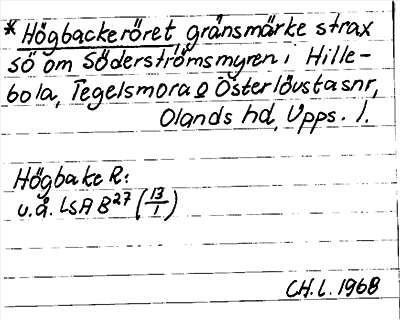 * Högbackeröret gränsmärke strax
sö om Söderströmsmyren i Hille-
bola, Tegelsmora o Österlövstasnr,
Olands hd, Upps. l.
Högbake R:
u.å. LSA B27 (13/1)
CH. L. 1968